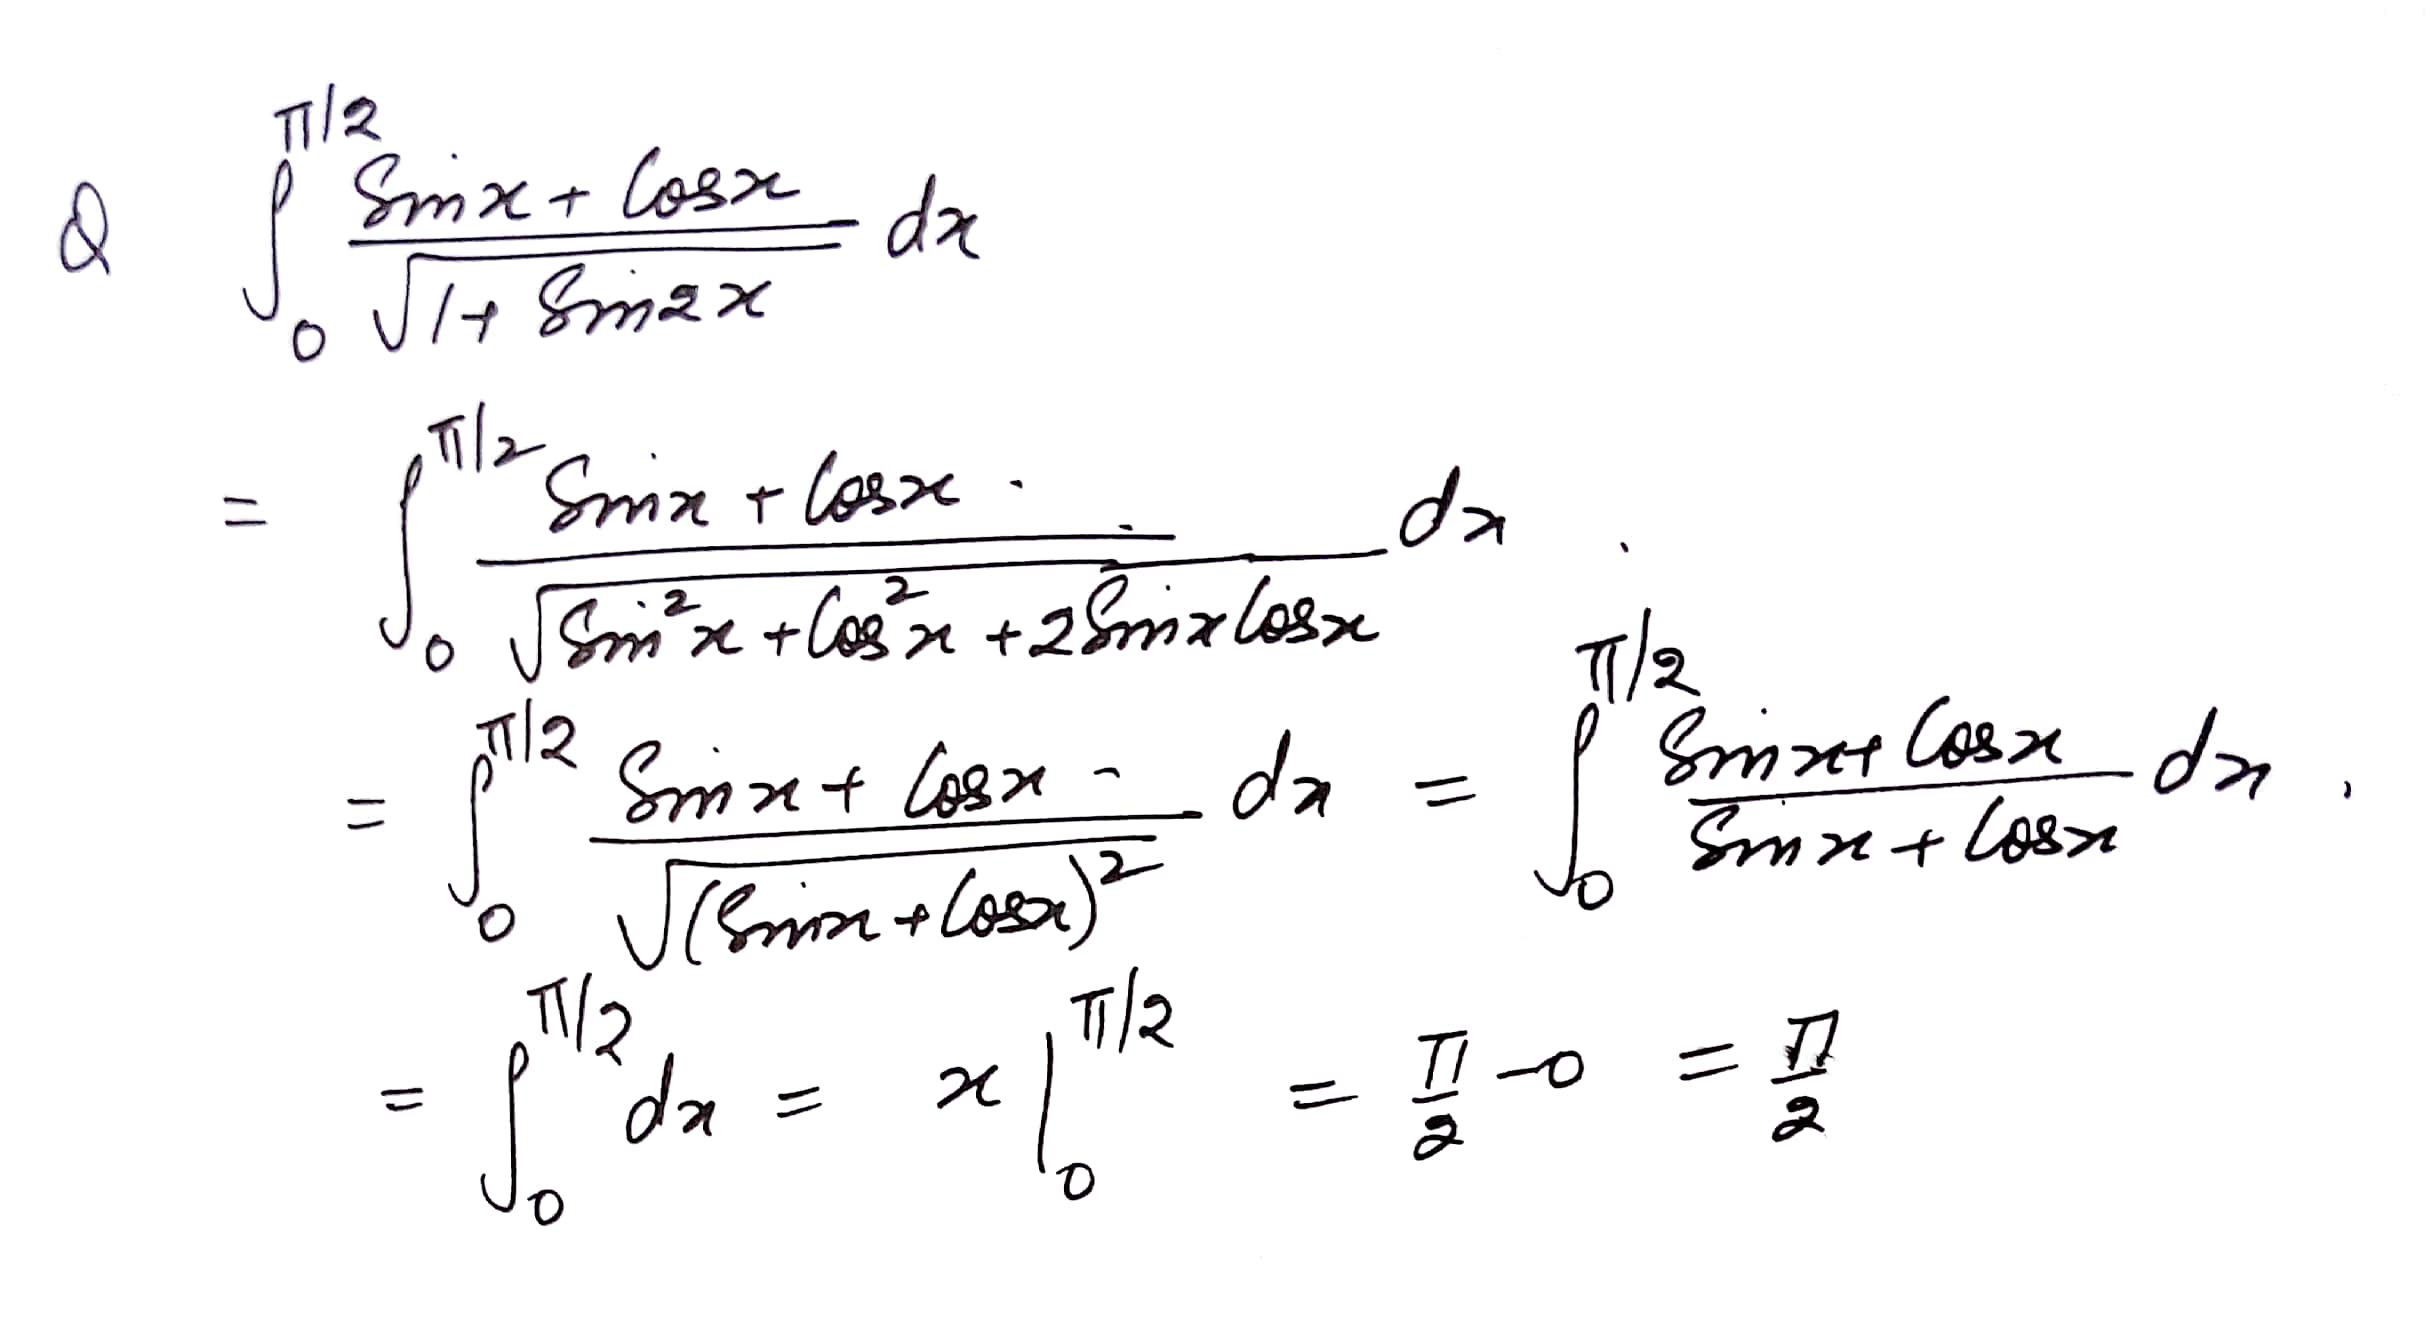 Q ∫₀^{π/2} (Sin x + Cos x) / √(1 + Sin 2x) dx
= ∫₀^{π/2} (Sin x + Cos x) / √(Sin²x + Cos²x + 2 Sin x Cos x) dx
= ∫₀^{π/2} (Sin x + Cos x) / √((Sin x + Cos x)²) dx = ∫₀^{π/2} (Sin x + Cos x) / (Sin x + Cos x) dx
= ∫₀^{π/2} dx = x |₀^{π/2} = π/2 - 0 = π/2